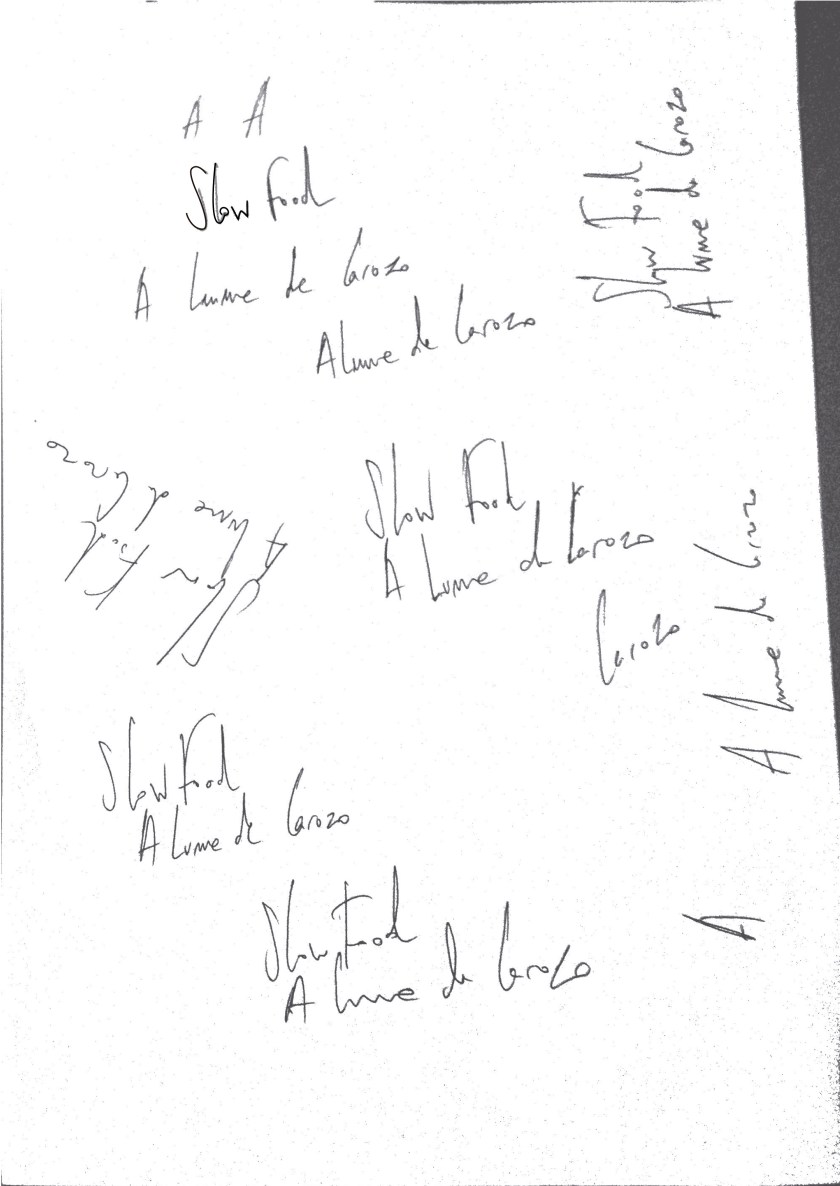 A A
Slow Food
A Lume de Carozo
A Lume de Carozo
Slow Food
A Lume de Carozo
Slow Food
A Lume de Carozo
Carozo
A Lume de Carozo
Slow Food
A Lume de Carozo
Slow Food
A Lume de Carozo
Slow Food
A Lume de Carozo
A